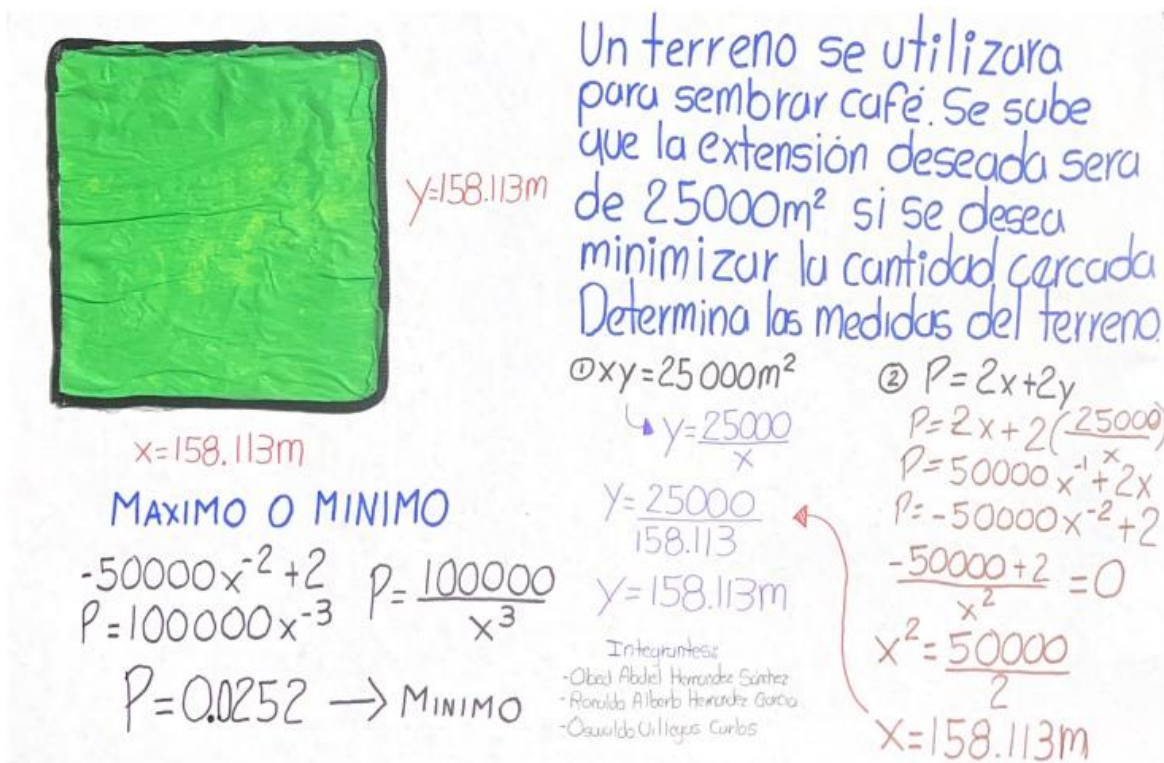 Un terreno se utilizara
para sembrar café. Se sabe
que la extensión deseada sera
de 25000m² si se desea
minimizar la cantidad cercada
Determina las medidas del terreno.
y=158.113m
x=158.113m
① xy=25000m²
y=25000/x
y=25000/158.113
y=158.113m
② P=2x+2y
P=2x+2(25000/x)
P=50000x⁻¹+2x
P=-50000x⁻²+2
-50000+2/x² =0
x²=50000/2
x=158.113m
MAXIMO O MINIMO
-50000x⁻²+2
P=100000x⁻³
P=100000/x³
P=0.0252 → MINIMO
Integrantes:
-Obed Abdiel Hernandez Sánchez
-Ronaldo Alberto Hernandez Garcia
-Oswaldo Villegas Carlos